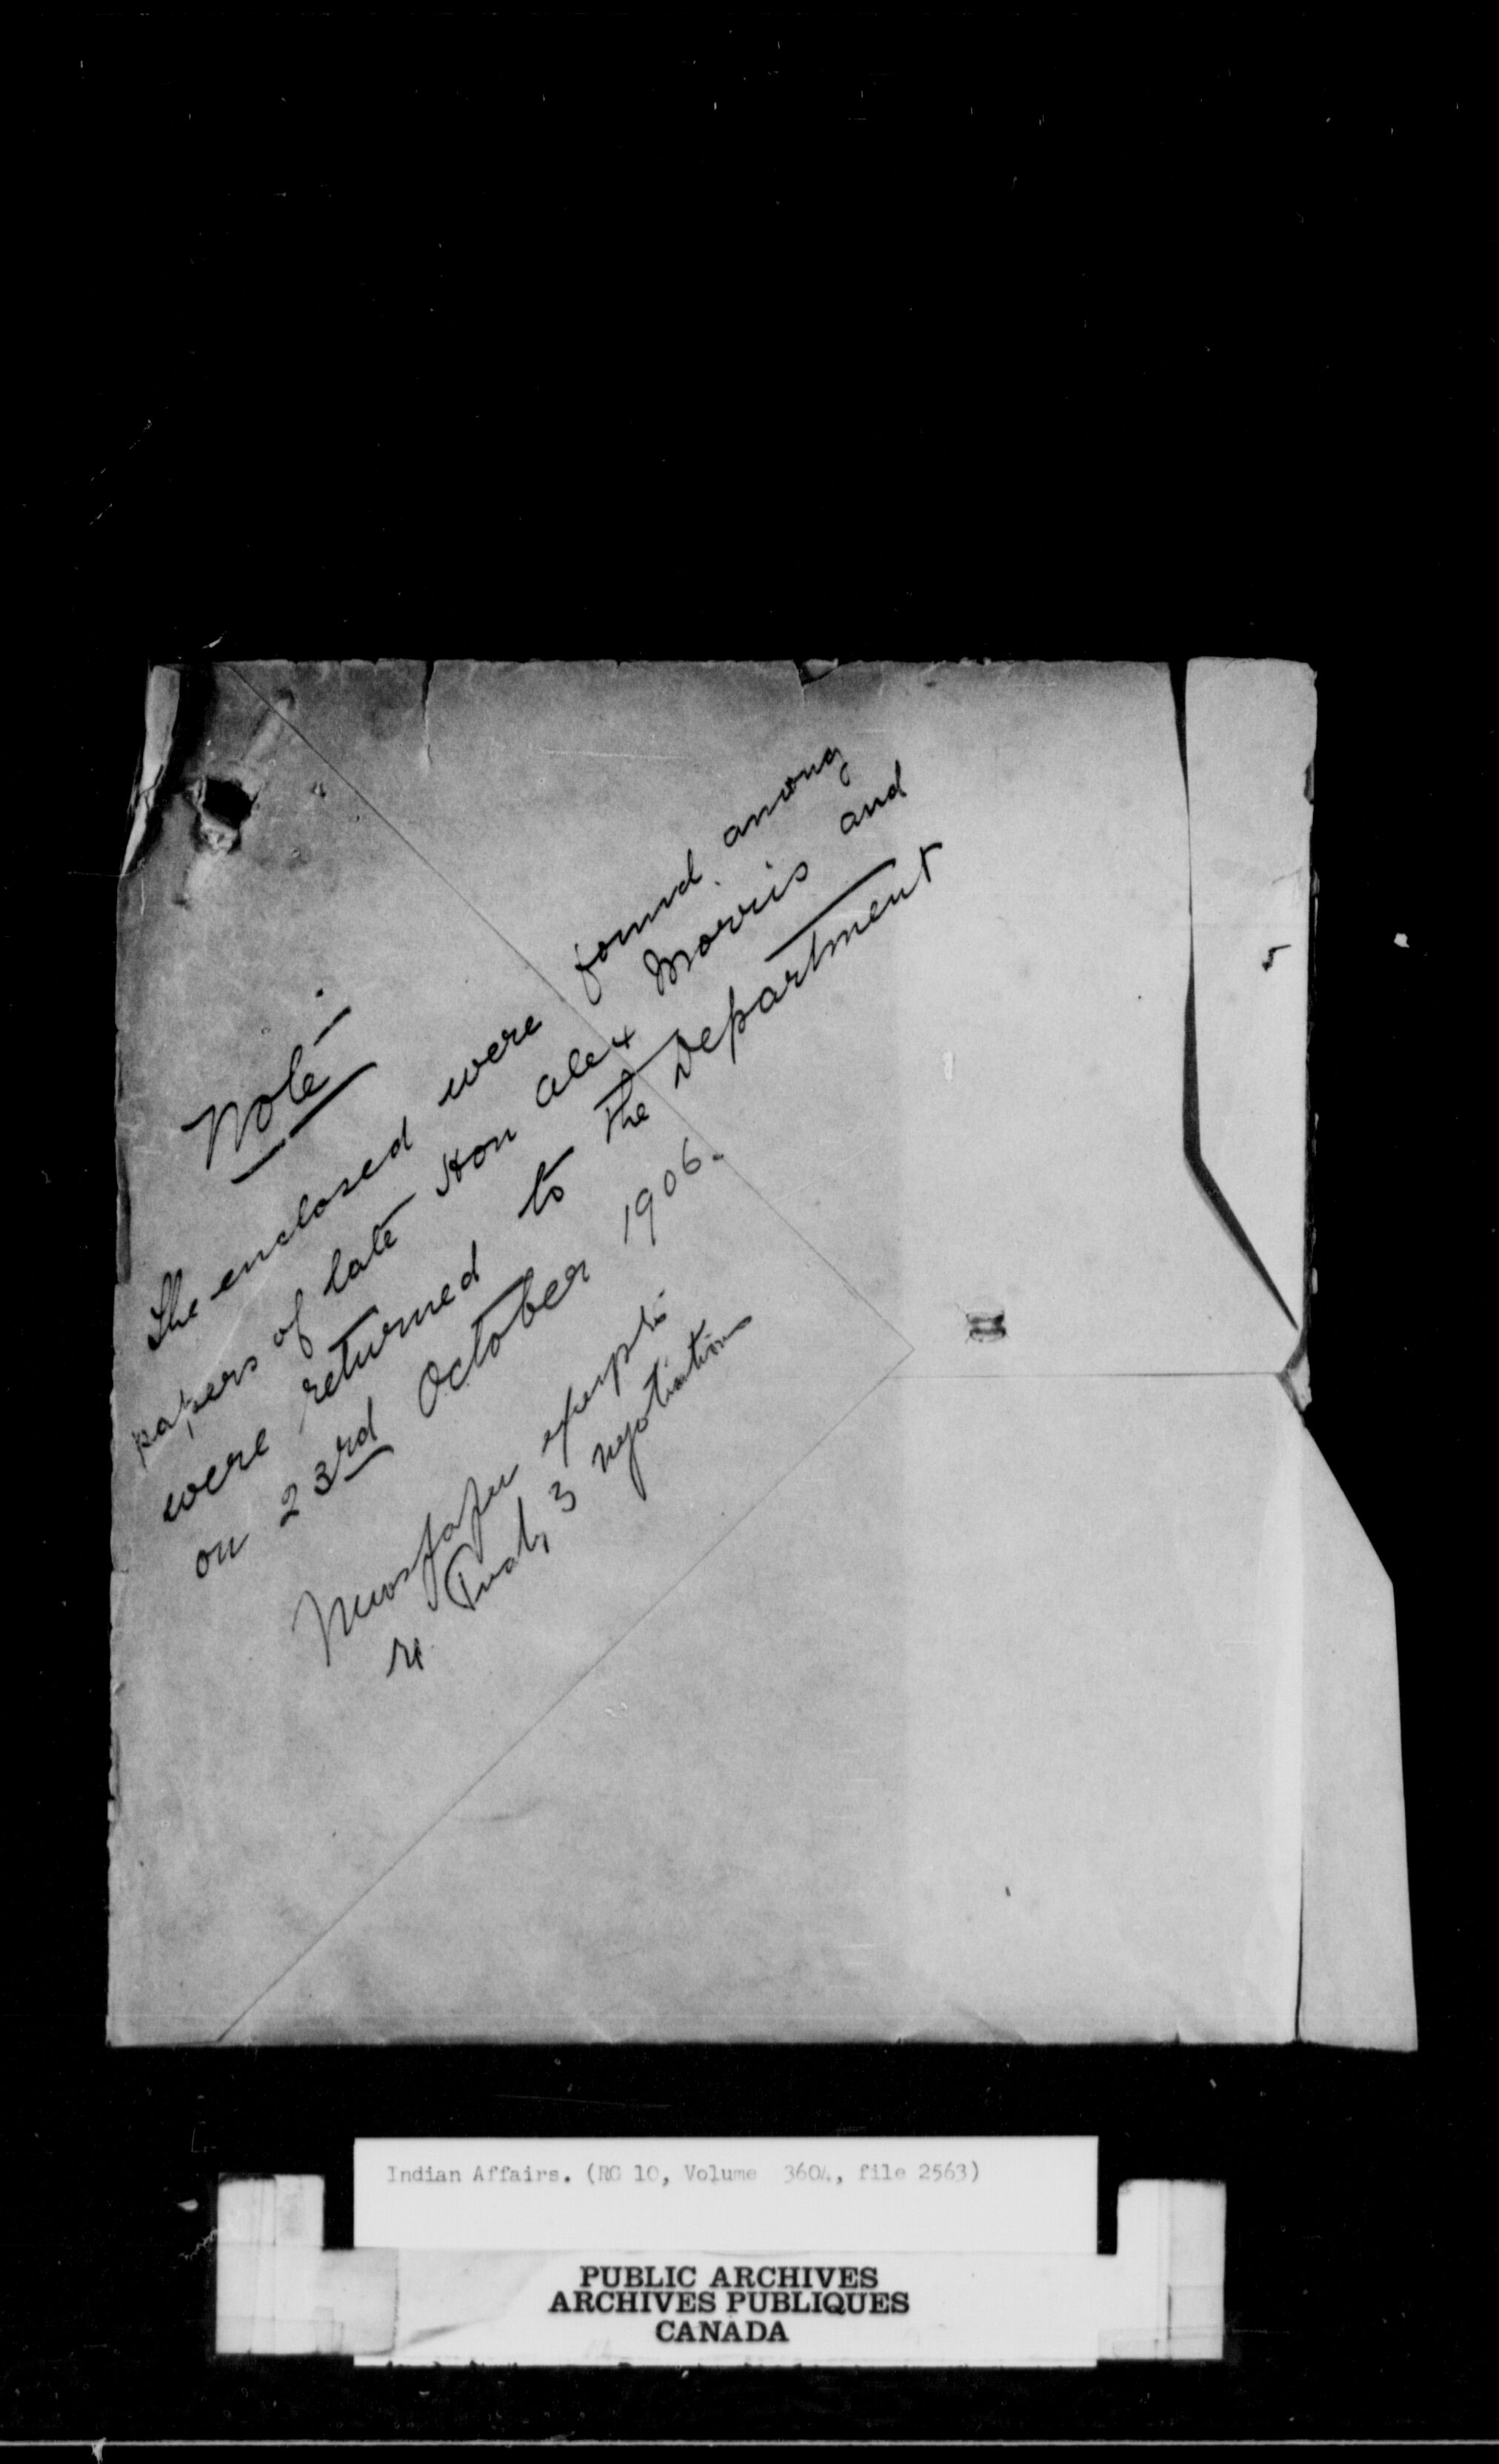 Note -
The enclosed were found among
papers of late Hon Alex Morris and
were returned to the Department
on 23rd October 1906.
Newspaper
re Treaty 3 negotiations
5
Indian Affairs. (RG 10, Volume 3604, file 2563)
PUBLIC ARCHIVES
ARCHIVES PUBLIQUES
CANADA